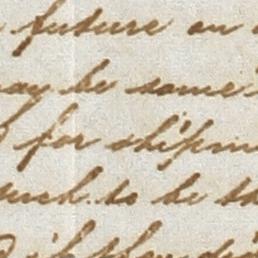 future on
may be some
for shipm
such. to be th